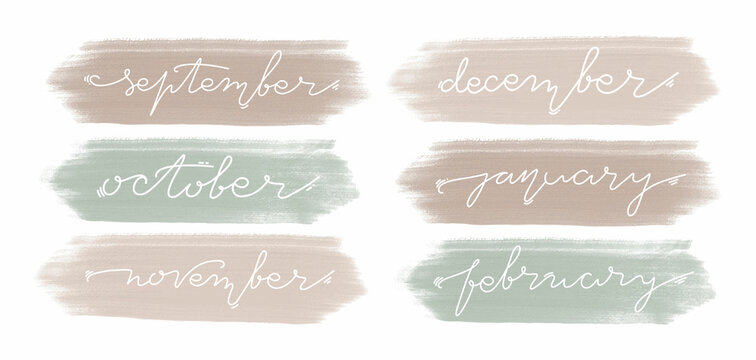 september
october
november
december
january
february